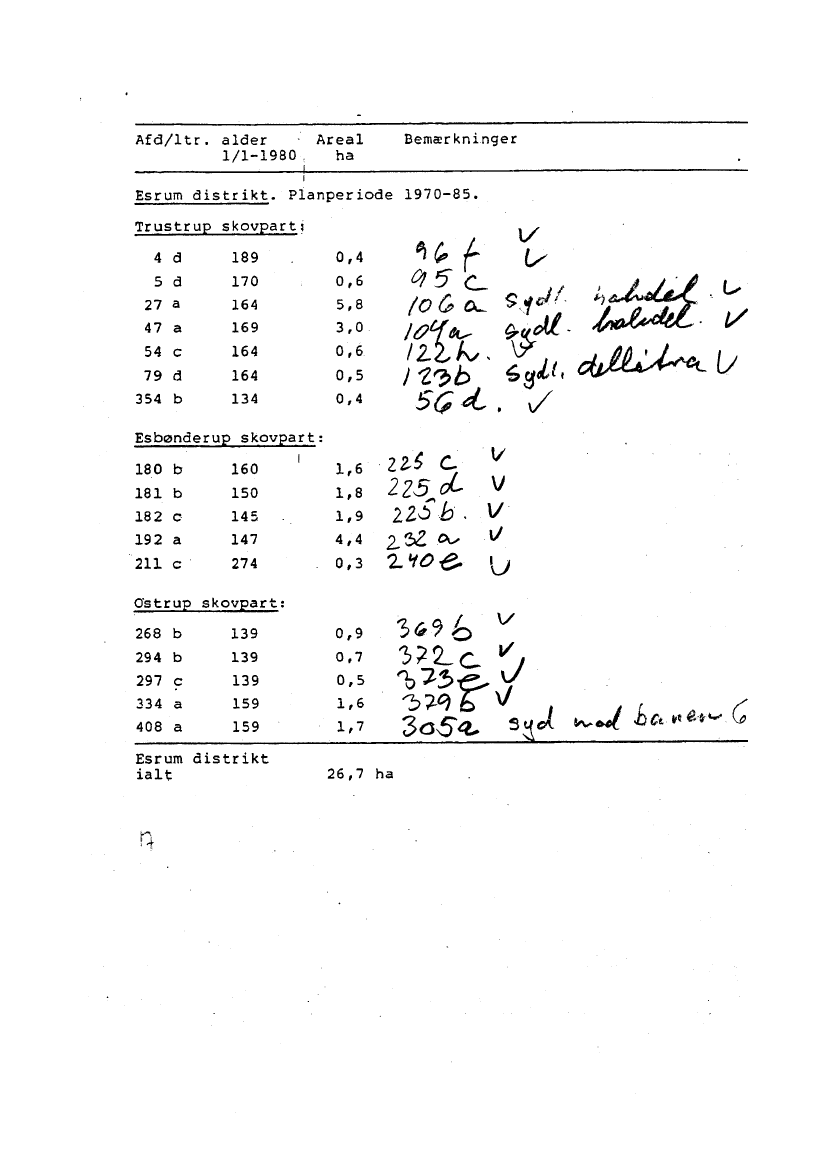 Afd/ltr. alder Areal Bemærkninger
1/1-1980 ha
Esrum distrikt. Planperiode 1970-85.
Trustrup skovpart:
4 d 189 0,4 96 f
5 d 170 0,6 95 c
27 a 164 5,8 106a sydl. halvdel.
47 a 169 3,0 104a sydl. halvdel.
54 c 164 0,6 122h.
79 d 164 0,5 123b sydl. dellitra
354 b 134 0,4 56d.
Esbønderup skovpart:
180 b 160 1,6 225 c
181 b 150 1,8 225 d
182 c 145 1,9 225 b.
192 a 147 4,4 232 a
211 c 274 0,3 240 e
Østrup skovpart:
268 b 139 0,9 369 b
294 b 139 0,7 372 c
297 c 139 0,5 373 e
334 a 159 1,6 379 b
408 a 159 1,7 305a syd mod banen
Esrum distrikt
ialt 26,7 ha
17